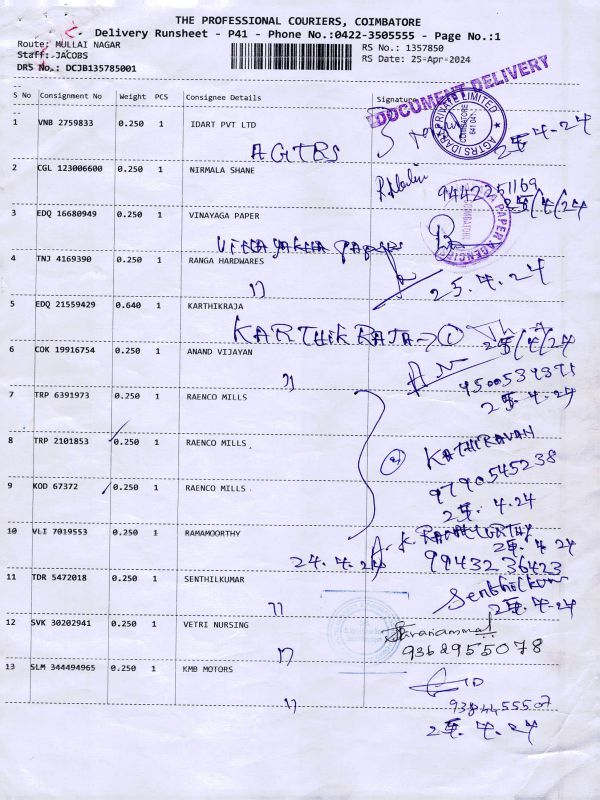 THE PROFESSIONAL COURIERS, COIMBATORE
Delivery Runsheet - P41 - Phone No.:0422-3505555 - Page No.:1
Route: MULLAI NAGAR
RS No.: 1357850
Staff: JACOBS
RS Date: 25-Apr-2024
DRS No.: DCJB135785001
DOCUMENT DELIVERY
S No Consignment No Weight PCS Consignee Details Signature
1 VNB 2759833 0.250 1 IDART PVT LTD
AGTRS
25.4.24
2 CGL 123006600 0.250 1 NIRMALA SHANE
9442251169
25/4/24
3 EDQ 16680949 0.250 1 VINAYAGA PAPER
4 TNJ 4169390 0.250 1 RANGA HARDWARES
25.4.24
5 EDQ 21559429 0.640 1 KARTHIKRAJA
KARTHIK RAJA
25/4/24
6 COK 19916754 0.250 1 ANAND VIJAYAN
25.4.24
7 TRP 6391973 0.250 1 RAENCO MILLS
8 TRP 2101853 0.250 1 RAENCO MILLS
KATHIRAVAN
9790545238
9 KOD 67372 0.250 1 RAENCO MILLS
25.4.24
10 VLI 7019553 0.250 1 RAMAMOORTHY
25.4.24
24.4.24
9943236423
11 TDR 5472018 0.250 1 SENTHILKUMAR
Senthilkum
25.4.24
12 SVK 30202941 0.250 1 VETRI NURSING
9362955078
13 SLM 344494965 0.250 1 KMB MOTORS
9384455507
25.4.24